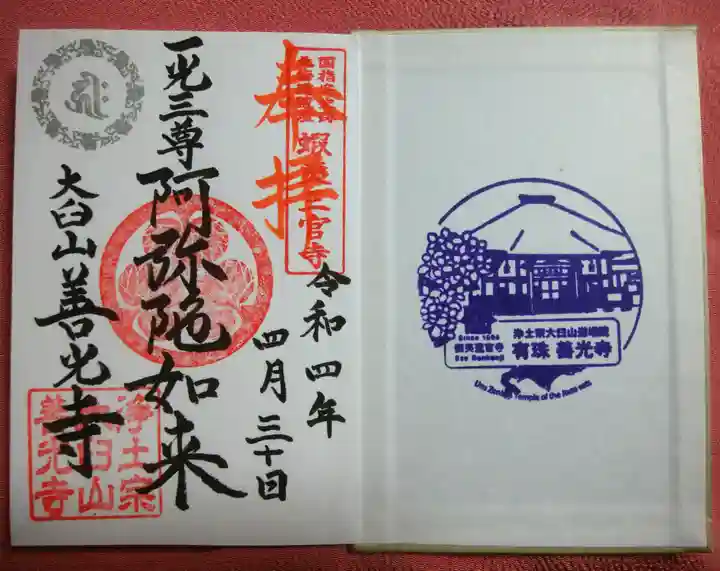 奉拝
蝦夷三官寺
令和四年
四月三十日
一光三尊
阿弥陀如来
大臼山
善光寺
浄土宗
大臼山
善光寺
Since 1804
蝦夷三官寺
Ezo Sankanji
浄土宗大臼山道場院
有珠 善光寺
Usu Zenkoji Temple of the